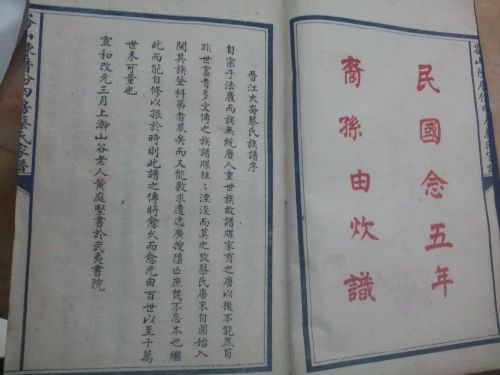 民國念五年
裔孫由炊識
晉江大崙蔡氏族譜序
自宗子法廢而族無統唐人重世族故譜牒家有之唐以後不能然苟
非世富貴多文傳之族譜牒往〻湮沒而莫之攷蔡氏唐末自固始入
閩其族登科第者最矣而又能敷求遺逸廣搜隱庶幾不忘本也繼
此而能自修以振於時則此譜之傳將愈久而愈光由百世以至千萬
世未可量也
宣和改元三月上澣山谷老人黃庭堅書於武夷書院